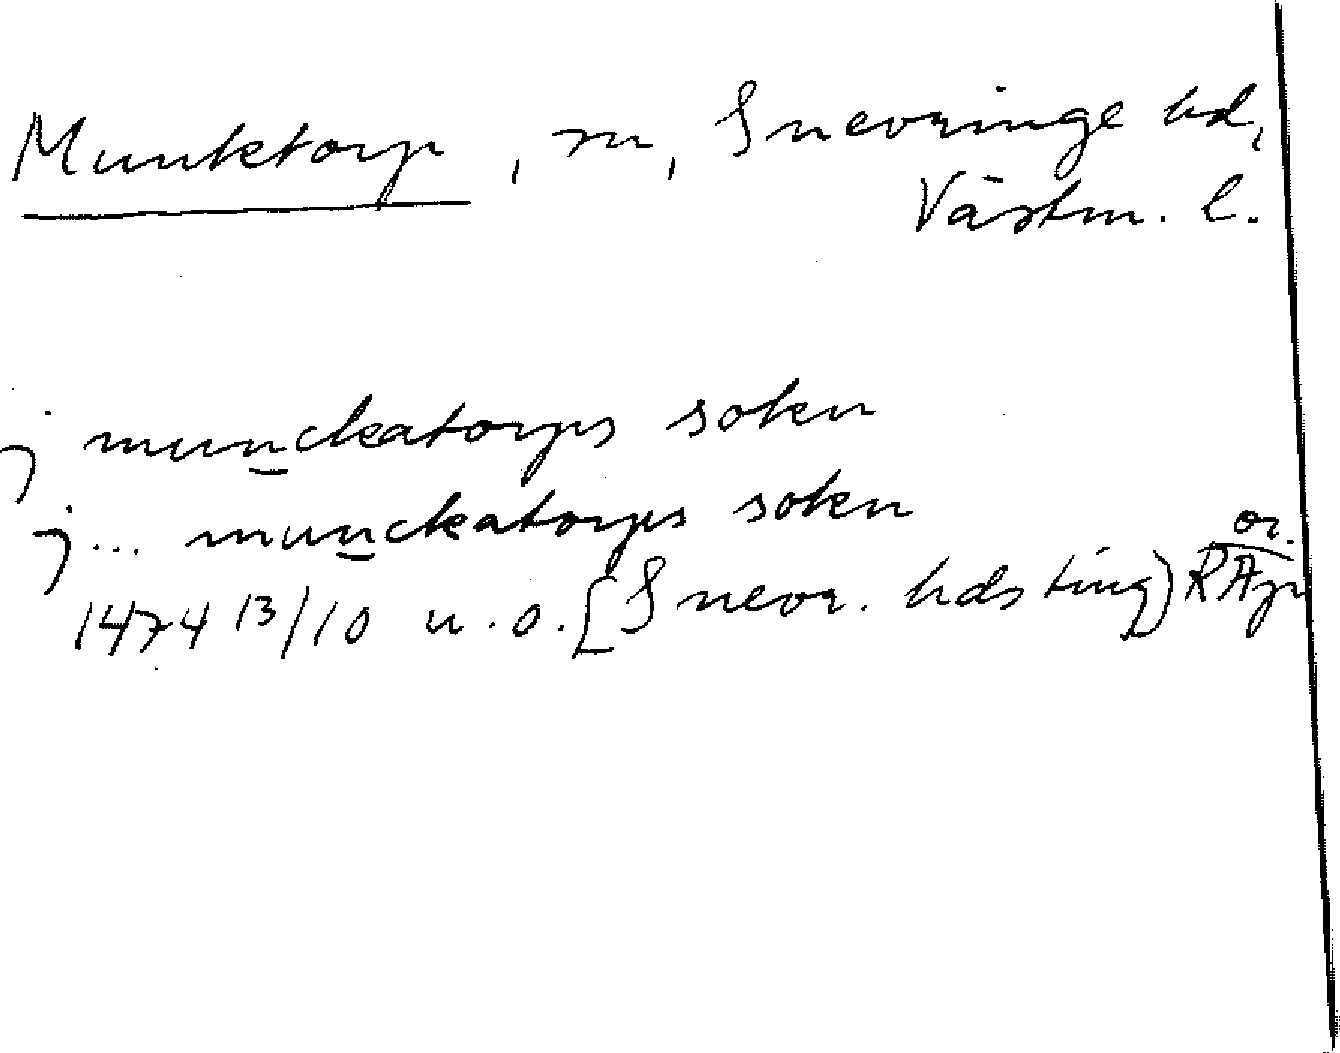 Munktorp, sn, Snevringe hd,
Västm. l.
j munckatorps sokn
j... munckatorps sokn
1474 13/10 u.o. [Snevr. hds ting) RAp or.